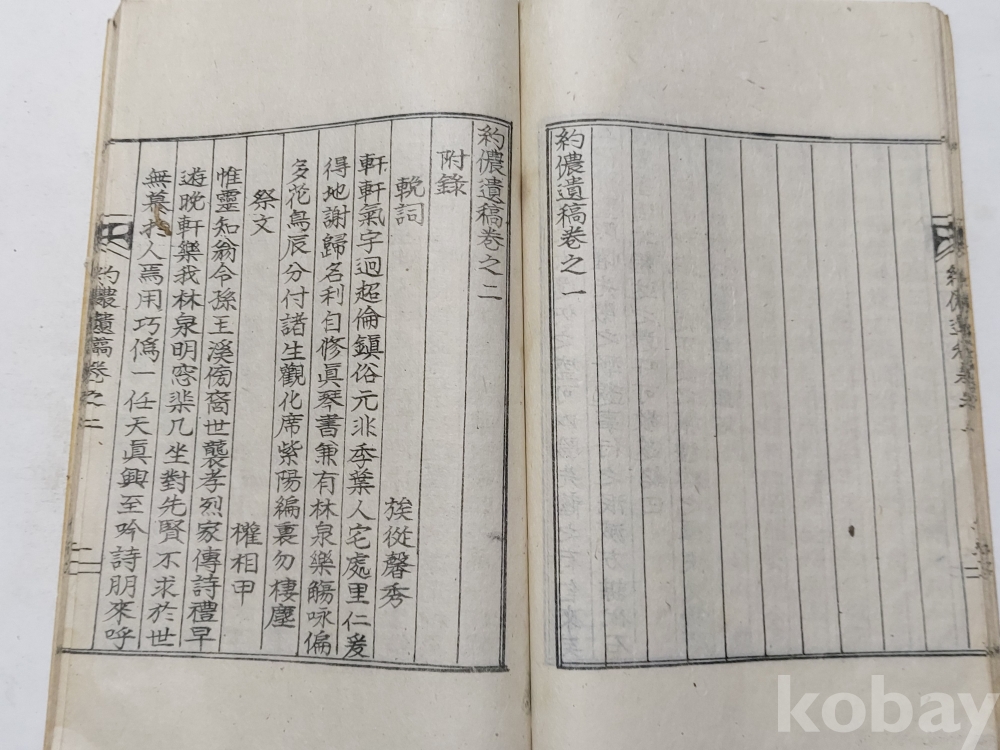 約儂遺稿卷之一
約儂遺稿卷之二
附錄
輓詞
族從馨秀
軒軒氣宇迥超倫鎭俗元非季葉人宅處里仁爰
得地謝歸名利自修眞琴書兼有林泉樂觴咏偏
多花鳥辰分付諸生觀化席紫陽編裏勿棲塵
祭文
權相甲
惟靈知翁令孫王溪傍裔世襲孝烈家傳詩禮早
遊晩軒樂我林泉明窓棐几坐對先賢不求於世
無慕於人焉用巧僞一任天眞興至吟詩朋來呼
約儂遺稿卷之二
kobay